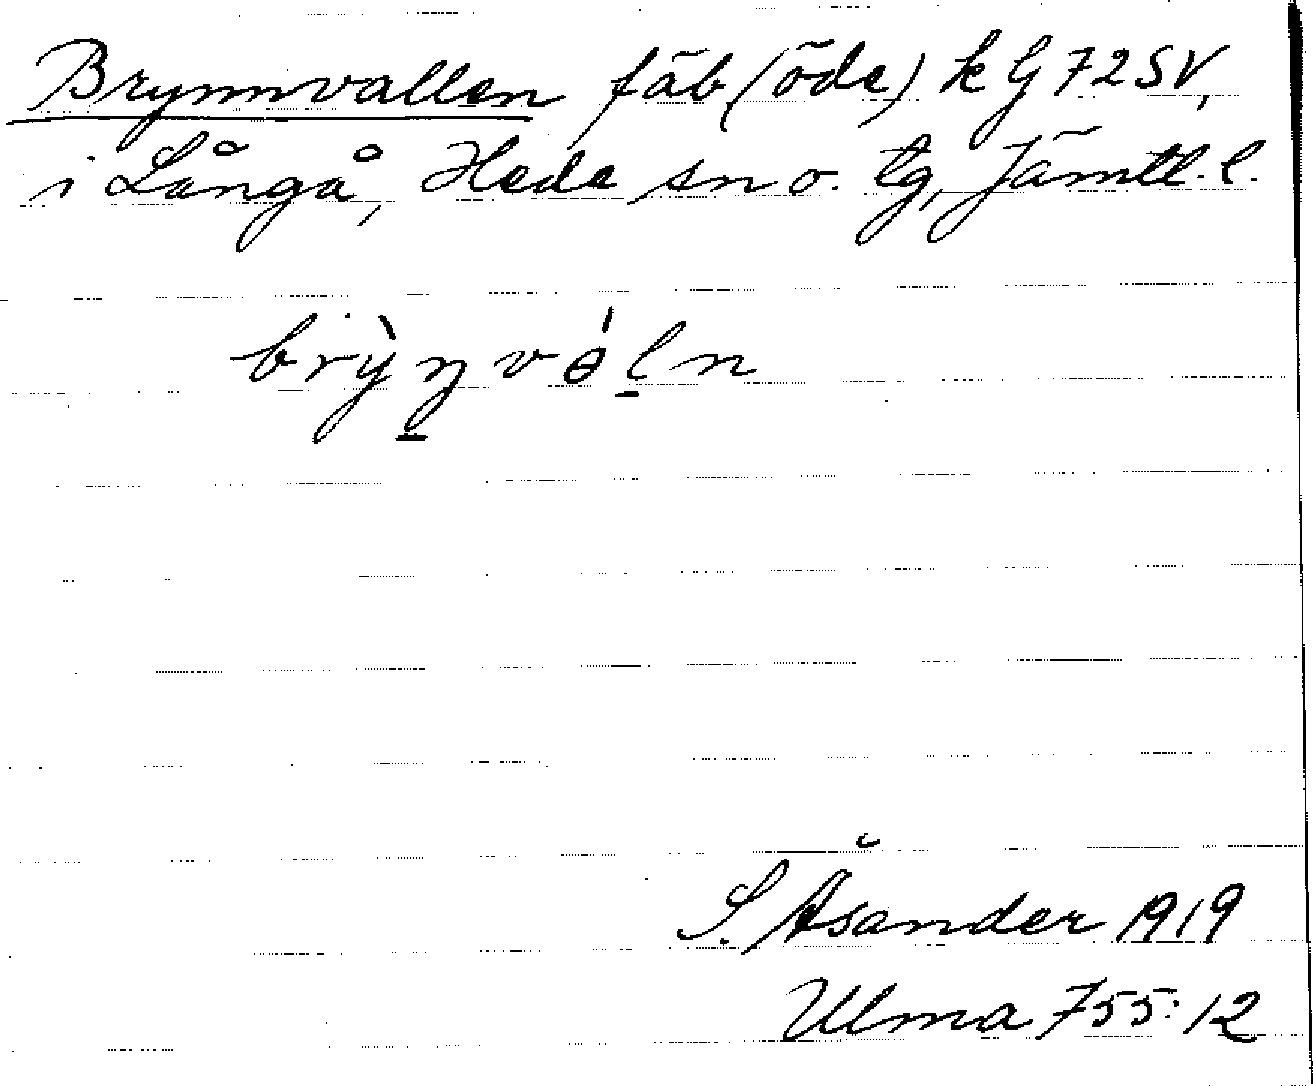 Brynnvallen fäb (öde) k G 72 SV,
i Långå, Hede sn o. tg, Jämtl. l.
brỳn̲vɵ́l̲n
S. Åsander 1919
Ulma 755:12